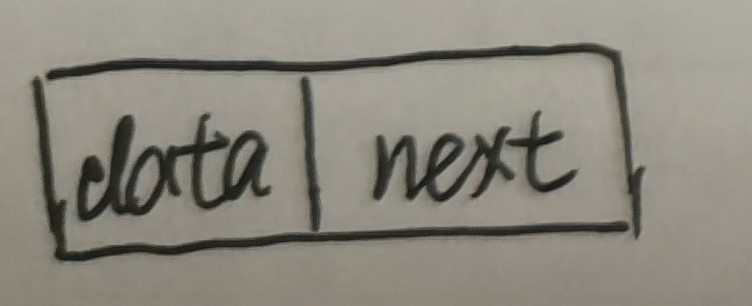 data next